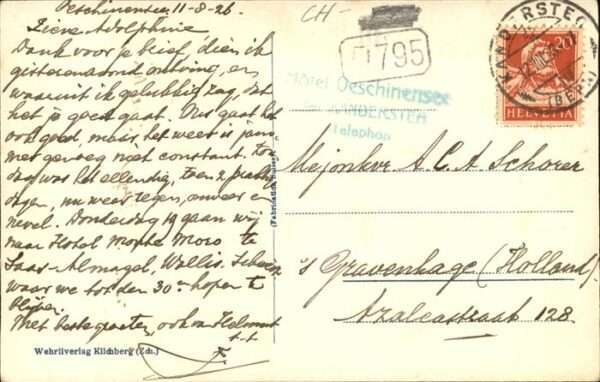 Oeschinensee 11-8-26.
Lieve Adolphine
Dank voor je brief, dien ik
gisterenavond ontving, en
waaruit ik gelukkig zag, dat
het je goed gaat. Ons gaat het
ook goed, maar het weer is jam-
mer genoeg niet constant.
dag was het ellendig, toen 2 prachtige
dagen, nu weer regen, onweer en
nevel. Donderdag 19 gaan wij
naar Hotel Monte Moro te
Saas-Almagel, Wallis,
waar we tot den 30en hopen te
blijven.
Met beste groeten, ook van Helmut
t.t.
Wehrliverlag Kilchberg (Zch.)
CH-
795
Hôtel Oeschinensee
KANDERSTEG
Telephon
KANDERSTEG
(BERN)
20
HELVETIA
Mejonkvr A. C. A Schorer
's Gravenhage (Holland)
Azaleastraat 128.